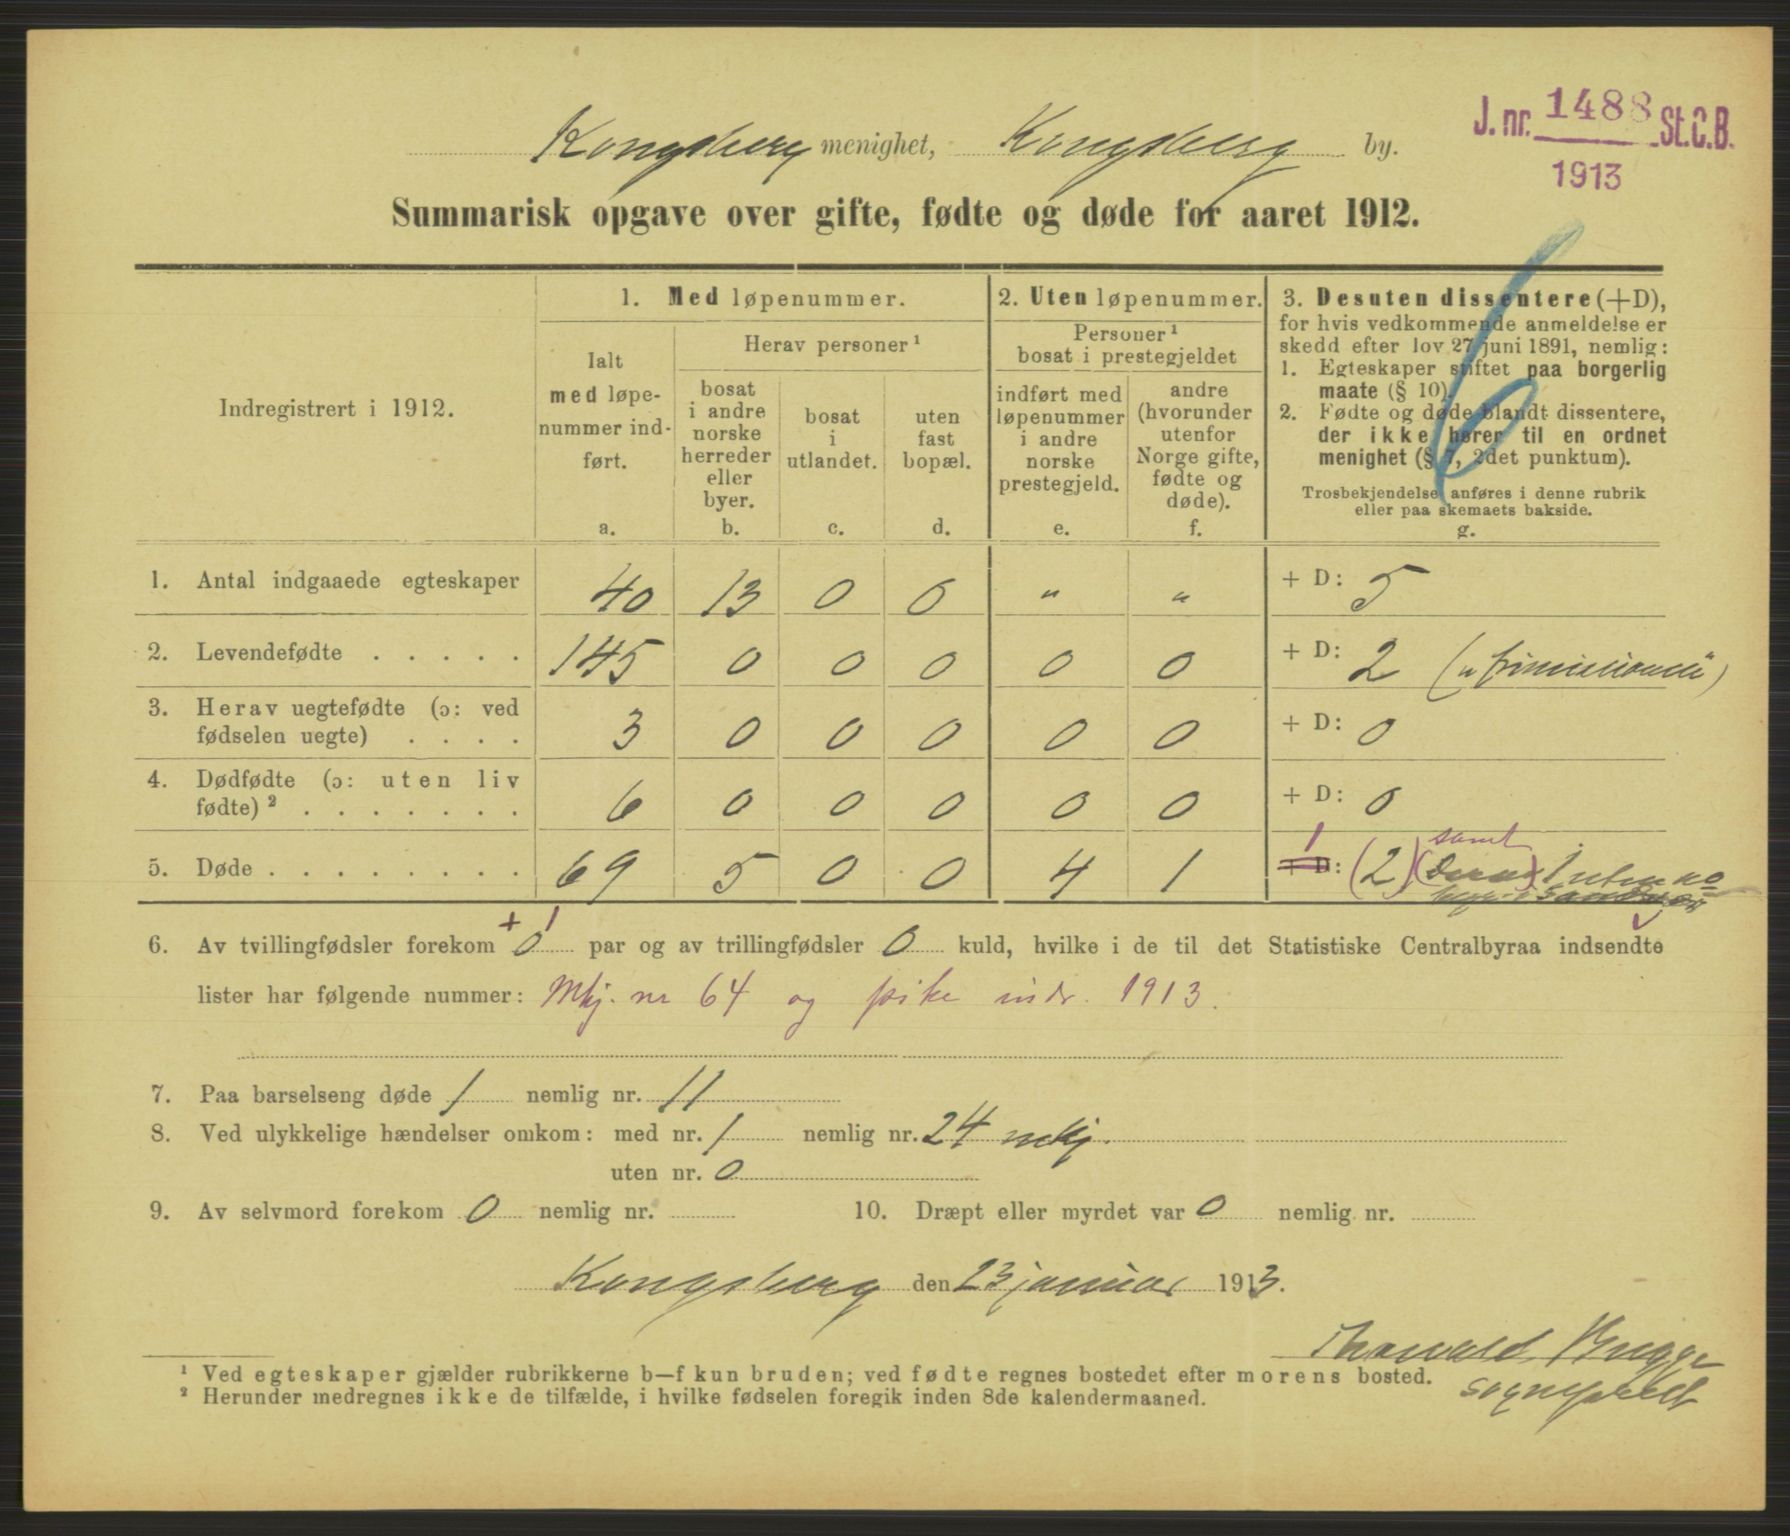 J. nr. 1488 St.C.B.
1913
Kongsberg menighet, Kongsberg by.
Summarisk opgave over gifte, fødte og døde for aaret 1912.
Indregistrert i 1912.
1. Med løpenummer.
Ialt
med løpe-
nummer ind-
ført.
a.
Herav personer¹
bosat
i andre
norske
herreder
eller
byer.
b.
bosat
i
utlandet.
c.
uten
fast
bopæl.
d.
2. Uten løpenummer.
Personer¹
bosat i prestegjeldet
indført med
løpenummer
i andre
norske
prestegjeld.
e.
andre
(hvorunder
utenfor
Norge gifte,
fødte og
døde).
f.
3. Desuten dissentere (+D),
for hvis vedkommende anmeldelse er
skedd efter lov 27 juni 1891, nemlig:
1. Egteskaper stiftet paa borgerlig
maate (§ 10).
2. Fødte og døde blandt dissentere,
der ikke hører til en ordnet
menighet (§ 7, 2det punktum).
Trosbekjendelse anføres i denne rubrik
eller paa skemaets bakside.
g.
1. Antal indgaaede egteskaper 40 13 0 0 " " + D: 5
2. Levendefødte . . . . . 145 0 0 0 0 0 + D: 2
3. Herav uegtefødte (ɔ: ved
fødselen uegte) . . . . 3 0 0 0 0 0 + D: 0
4. Dødfødte (ɔ: uten liv
fødte)² . . . . . . . 6 0 0 0 0 0 + D: 0
1 samt
5. Døde . . . . . . . . . 69 5 0 0 4 1 + D: (2) 1 uten no
6. Av tvillingfødsler forekom 0 + 1 par og av trillingfødsler 0 kuld, hvilke i de til det Statistiske Centralbyraa indsendte
lister har følgende nummer: Mkj. nr 64 og pike indr. 1913.
7. Paa barselseng døde 1 nemlig nr. 11
8. Ved ulykkelige hændelser omkom: med nr. 1 nemlig nr. 24 mkj.
uten nr. 0
9. Av selvmord forekom 0 nemlig nr. 10. Dræpt eller myrdet var 0 nemlig nr.
Kongsberg den 23 januar 1913.
Thorvald Bugge
sogneprest
¹ Ved egteskaper gjælder rubrikkerne b—f kun bruden; ved fødte regnes bostedet efter morens bosted.
² Herunder medregnes ikke de tilfælde, i hvilke fødselen foregik inden 8de kalendermaaned.